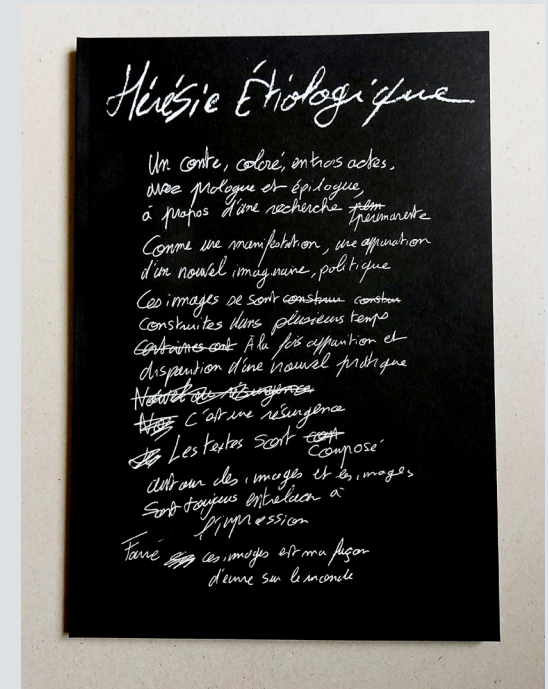 Hérésie Étiologique
Un conte, coloré, en trois actes,
avec prologue et épilogue,
à propos d'une recherche
permanente
Comme une manifestation, une apparition
d'un nouvel imaginaire, politique
Ces images se sont constru constru
construites dans plusieurs temps
certaines ont À la fois apparition et
disparition d'une nouvel pratique
Nouvel ou résurgence
C'est une résurgence
Les textes sont
composé
autour des images et les images
sont toujours entrelacer à
l'impression
Faire ces images est ma façon
d'écrire sur le monde